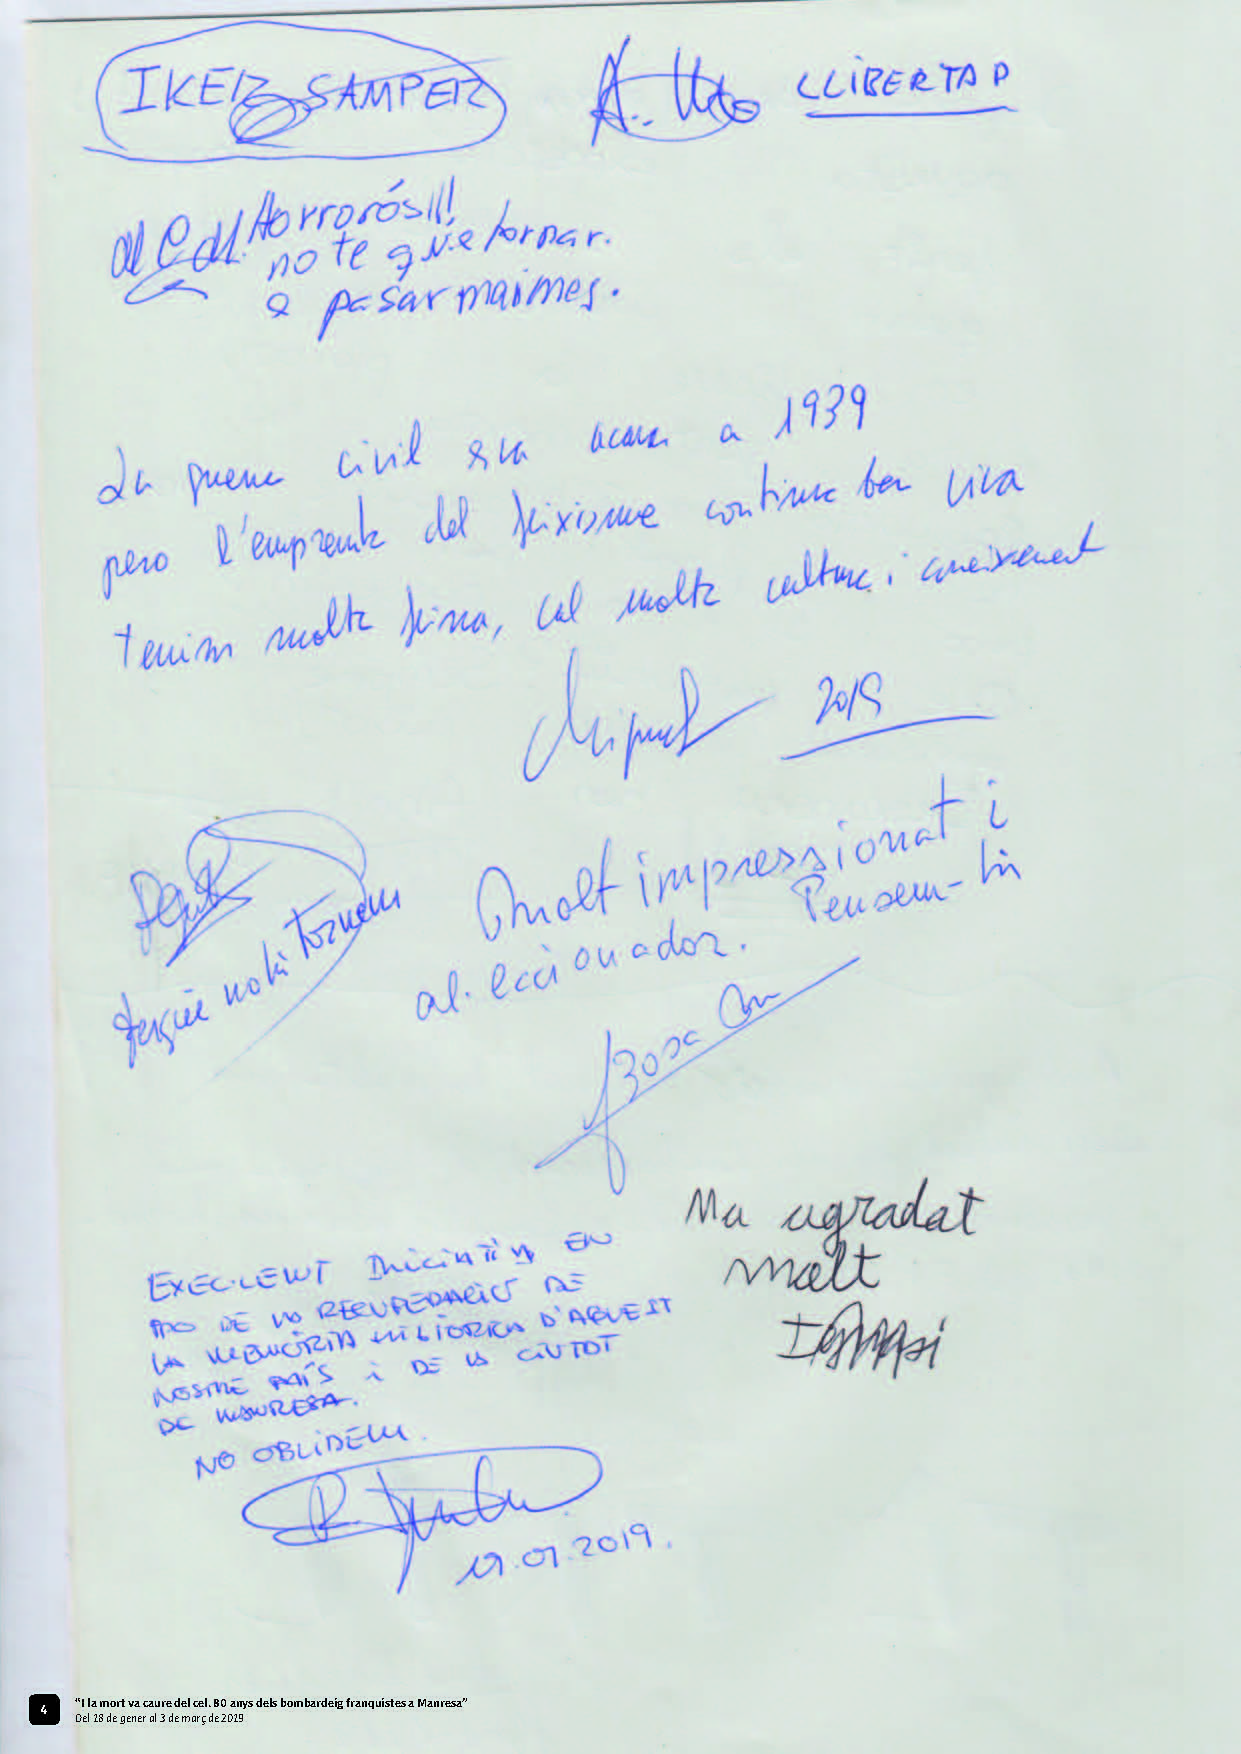 IKER SAMPER
LLIBERTAD
Horrorós!!!
no te que tornar.
a pasar mai mes.
La guerra civil s va acavar a 1939
pero l'emprenta del feixisme continua ben viva
tenim molta feina, cal molta cultura i coneixement
Miquel 2019
Molt impressionat i
al·leccionador. Pensem-hi
perquè no hi tornem
Rosa
M'a agradat
molt
EXEC·LENT INICIATIVA EN
PRO DE LA RECUPERACIÓ DE
LA MEMÒRIA HISTORICA D'AQUEST
NOSTRE PAÍS i DE LA CIUTAT
DE MANRESA.
NO OBLIDEM.
19.01.2019.
4
“I la mort va caure del cel. 80 anys dels bombardeig franquistes a Manresa”
Del 18 de gener al 3 de març de 2019